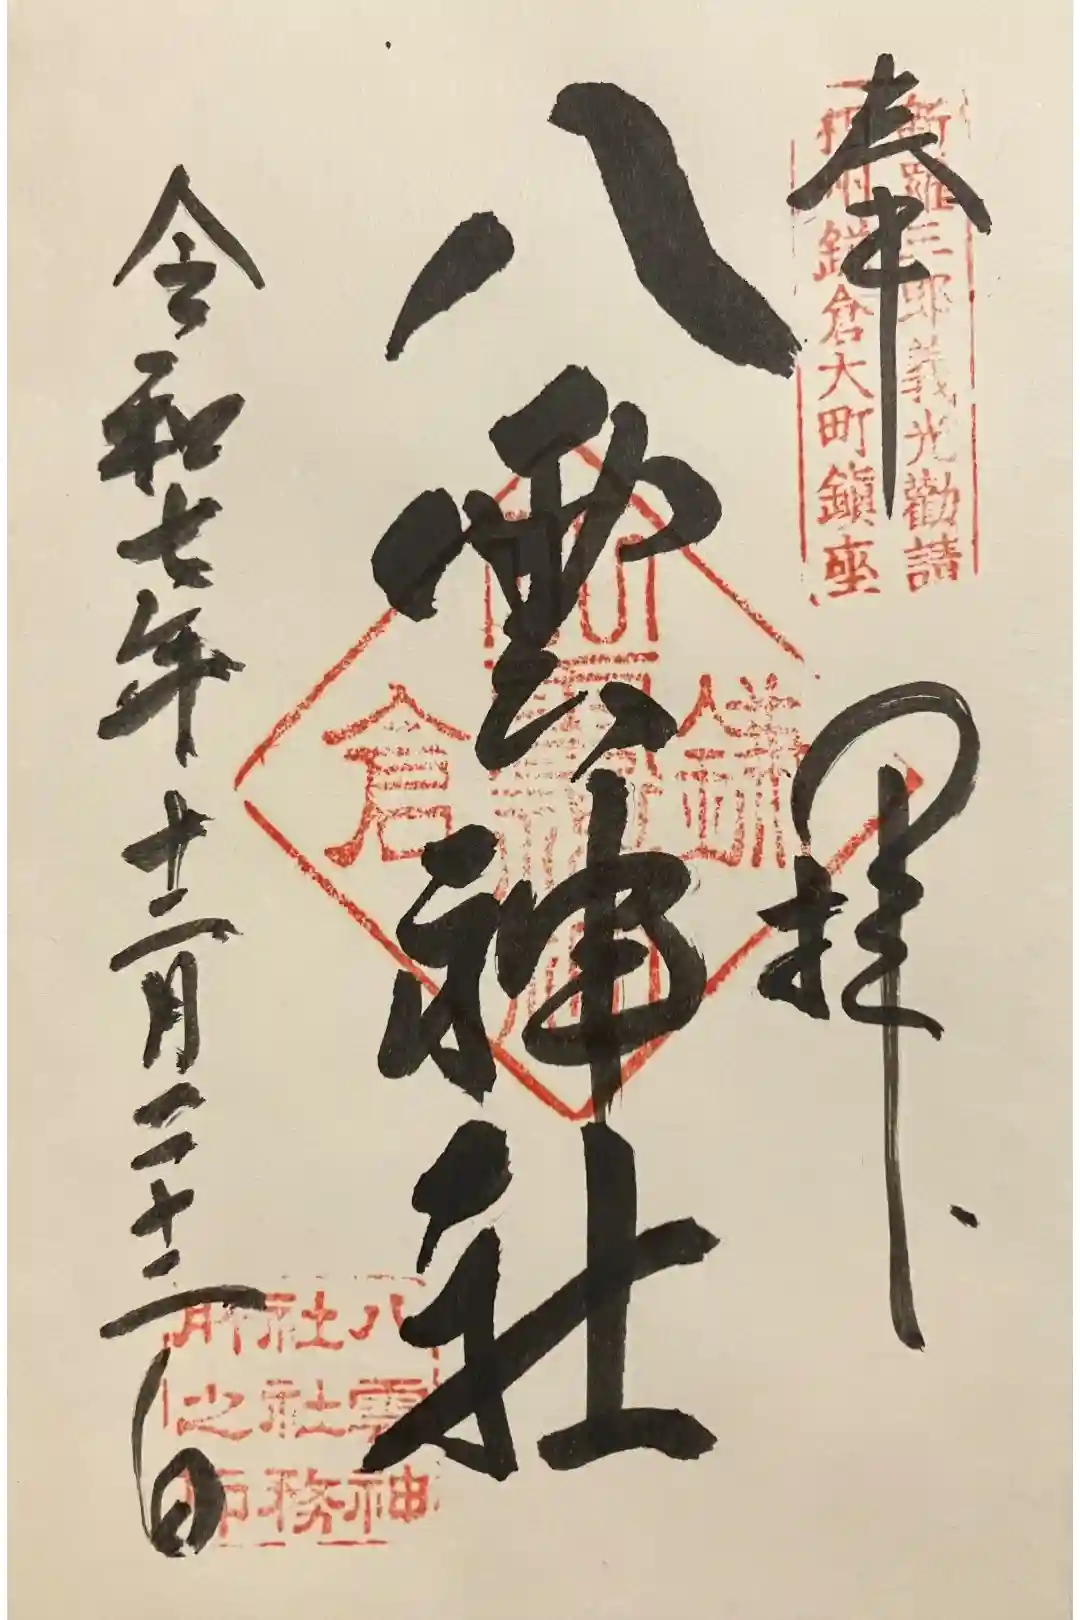 奉拝
新羅三郎義光勧請
相州鎌倉大町鎮座
八雲神社
鎌倉
八雲神社
令和七年十二月二十二日
八雲神
社社務
所之印